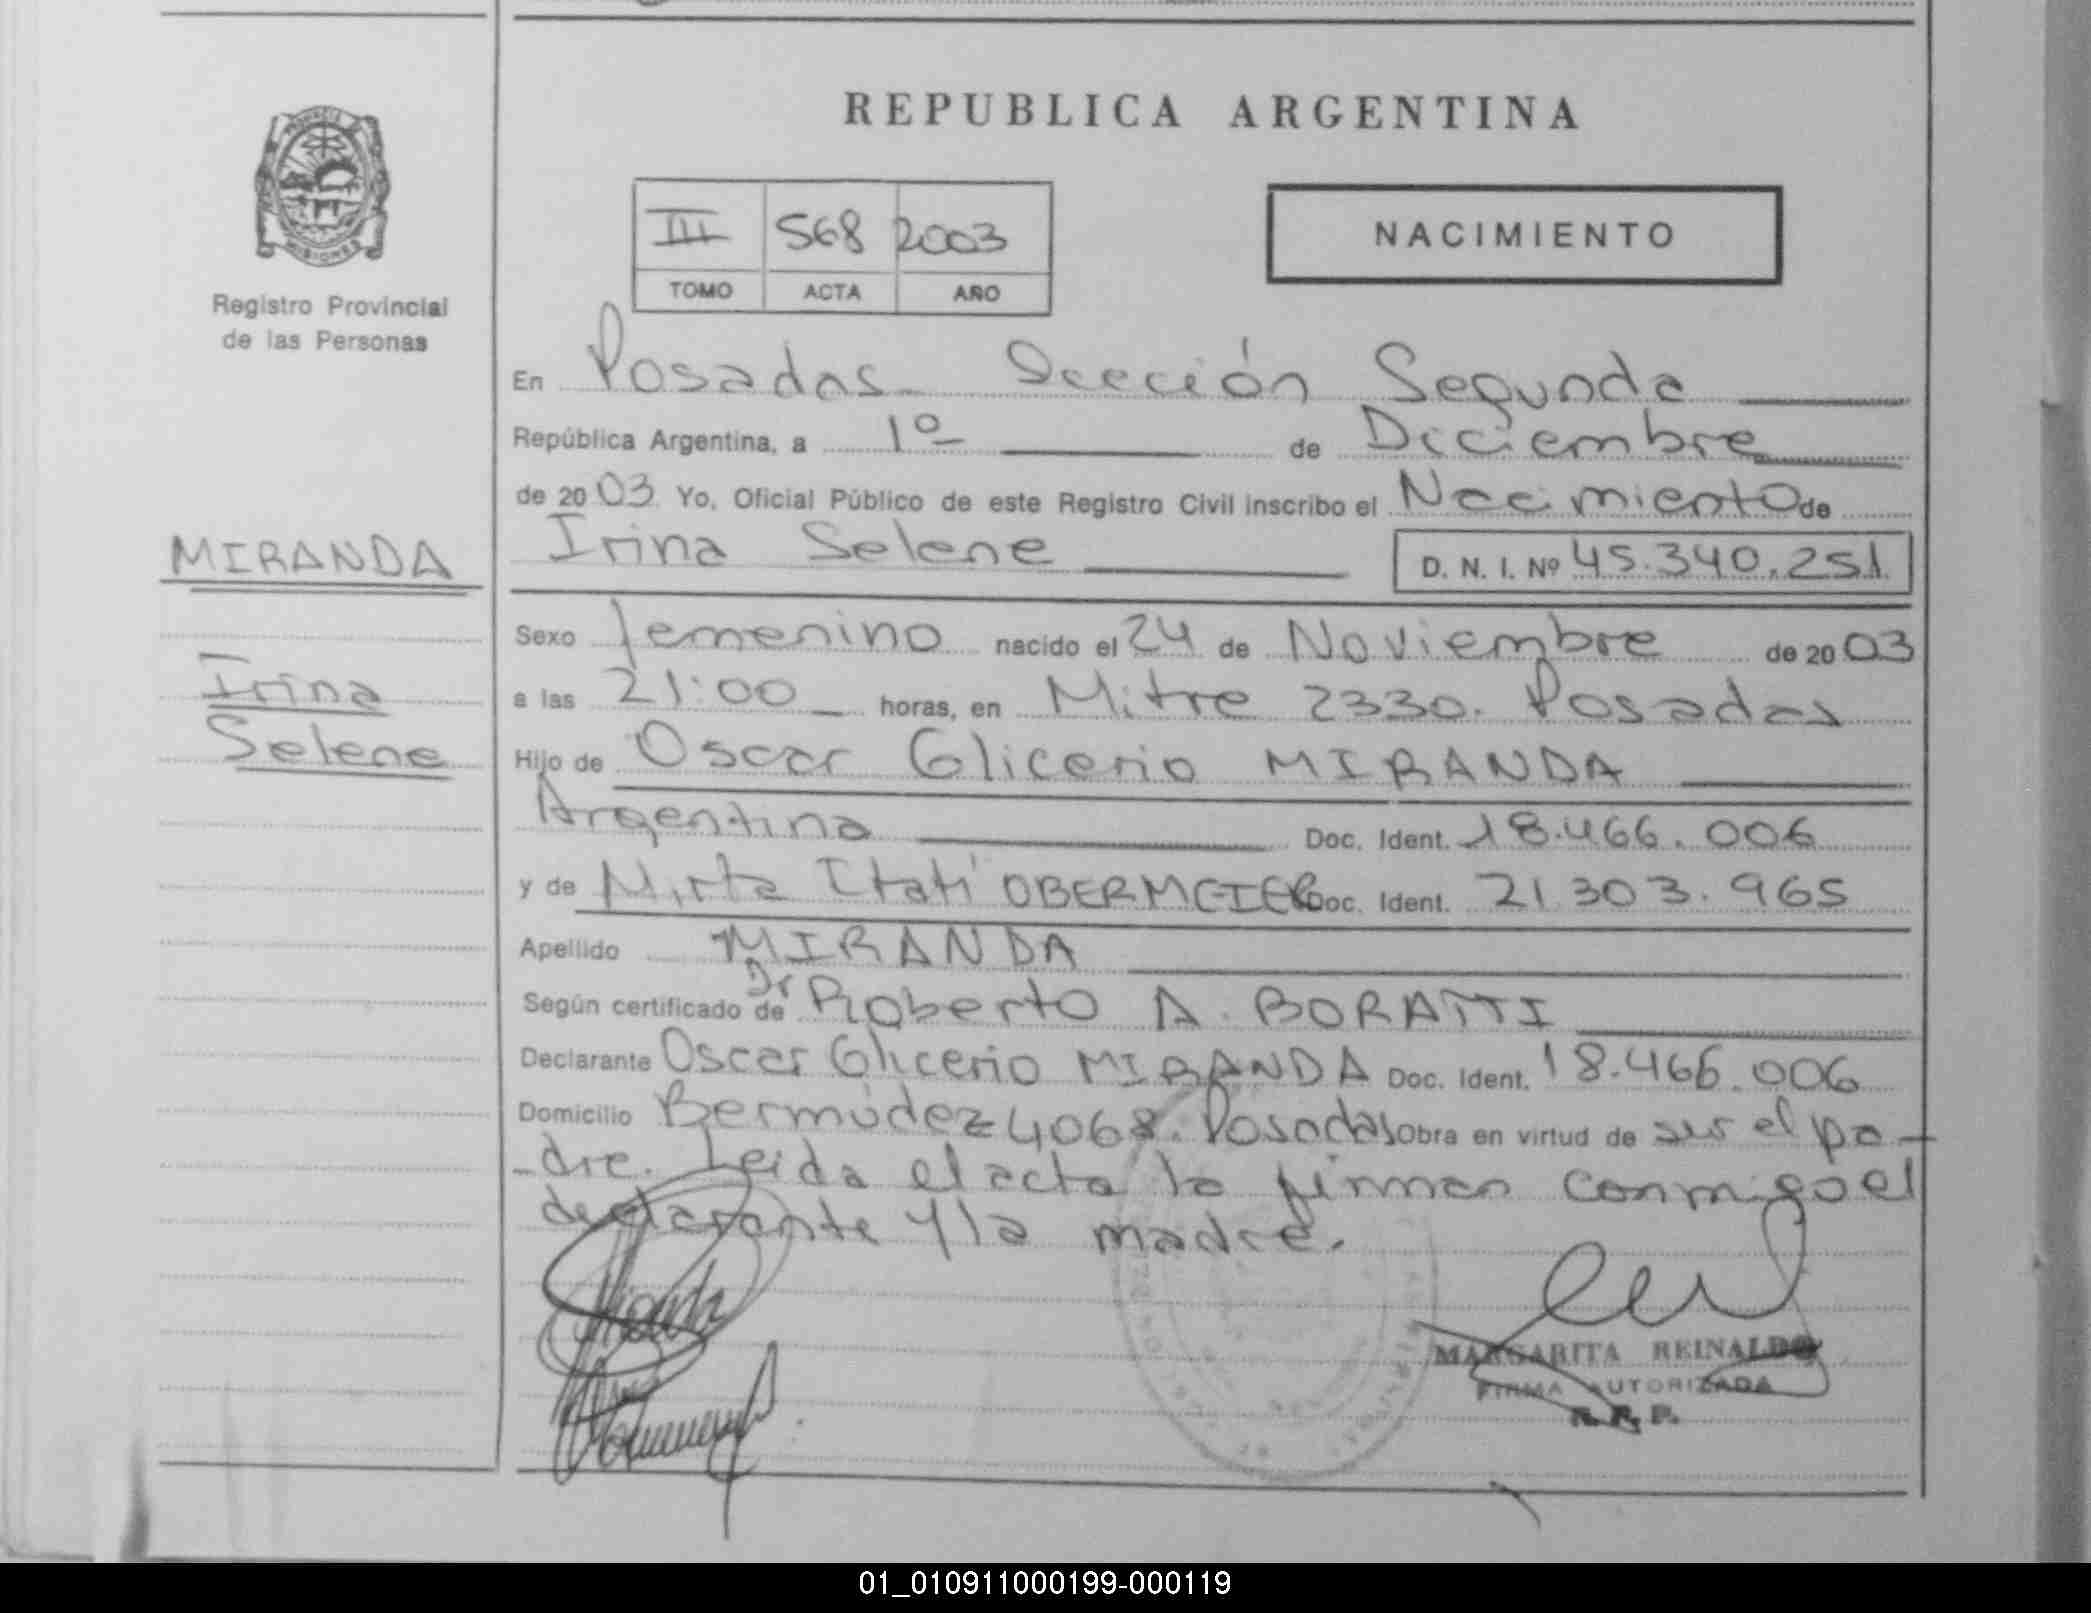 REPUBLICA ARGENTINA
PROVINCIA DE MISIONES
Registro Provincial
de las Personas
III 568 2003
TOMO ACTA AÑO
NACIMIENTO
En Posadas Sección Segunda
República Argentina, a 1º de Diciembre
de 2003 Yo, Oficial Público de este Registro Civil inscribo el Nacimiento de
Irina Selene D. N. I. Nº 45.340.251
MIRANDA
Irina
Selene
Sexo femenino nacido el 24 de Noviembre de 2003
a las 21:00 horas, en Mitre 2330. Posadas
Hijo de Oscar Glicerio MIRANDA
Argentina Doc. Ident. 18.466.006
y de Mirta Itatí OBERMEIER Doc. Ident. 21.303.965
Apellido MIRANDA
Según certificado de Dr Roberto A. BORATTI
Declarante Oscar Glicerio MIRANDA Doc. Ident. 18.466.006
Domicilio Bermúdez 4068. Posadas Obra en virtud de ser el pa-
dre. Leida el acta la firman conmigo el
declarante y la madre.
MARGARITA REINALDO
FIRMA AUTORIZADA
R. P. P.
01_010911000199-000119